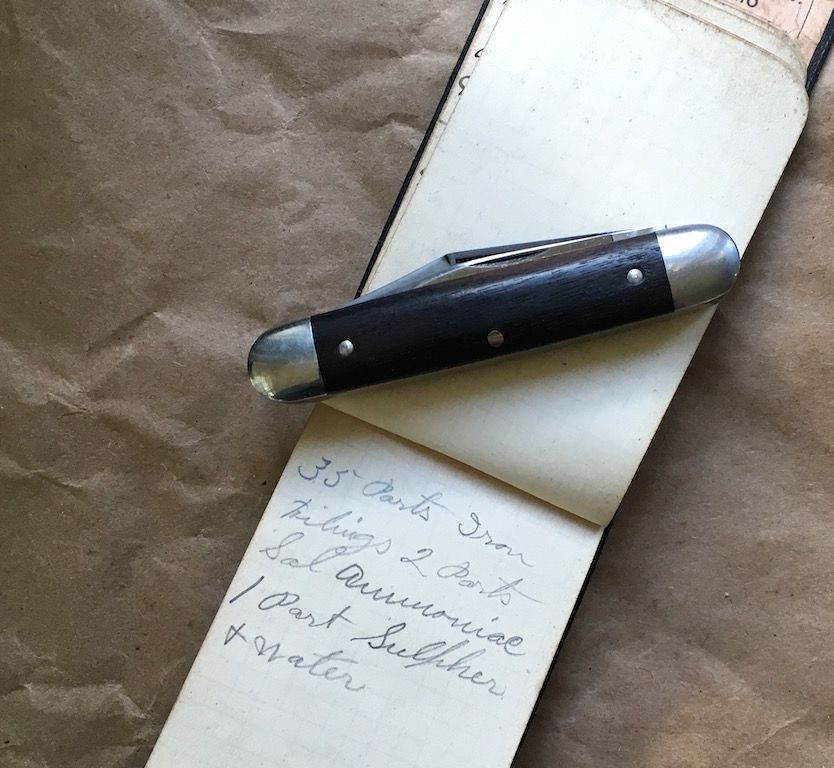 35 Parts Iron
Filings 2 Parts
Sal Ammoniac
1 Part Sulpher
+ Water